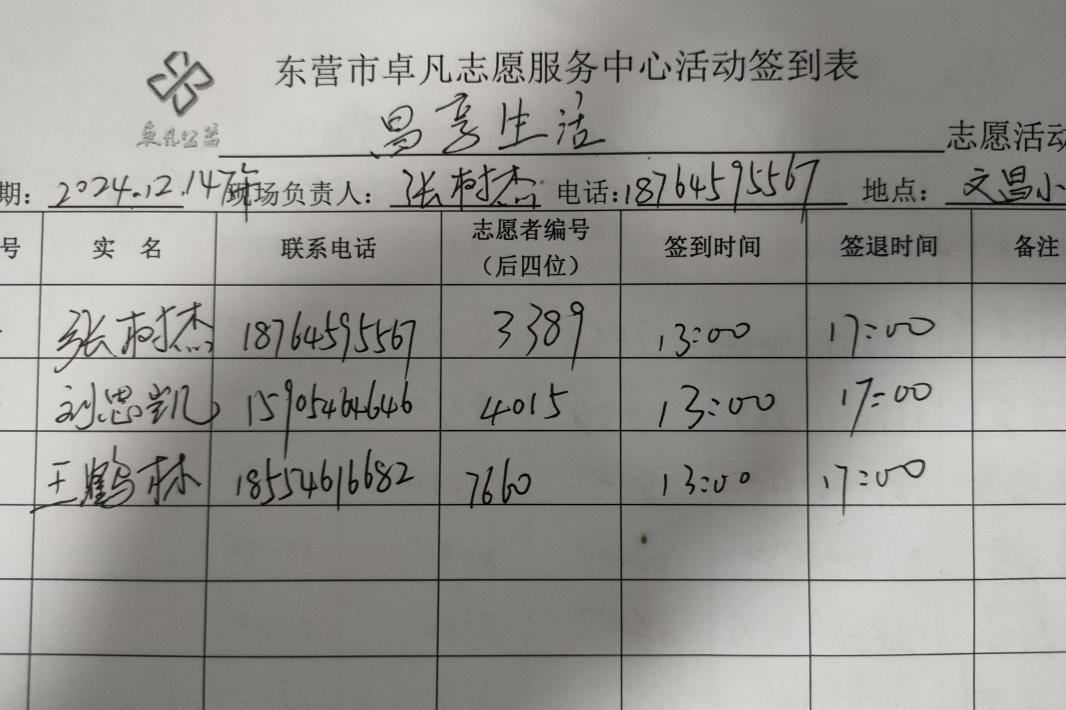 东营市卓凡志愿服务中心活动签到表
卓凡公益
昌享生活 志愿活动
期: 2024.12.14下午 现场负责人: 张树杰 电话:18764595567 地点: 文昌小
号 实 名 联系电话 志愿者编号(后四位) 签到时间 签退时间 备注
张树杰 18764595567 3389 13:00 17:00
刘思凯 15905464646 4015 13:00 17:00
王鹤林 18554616682 7660 13:00 17:00